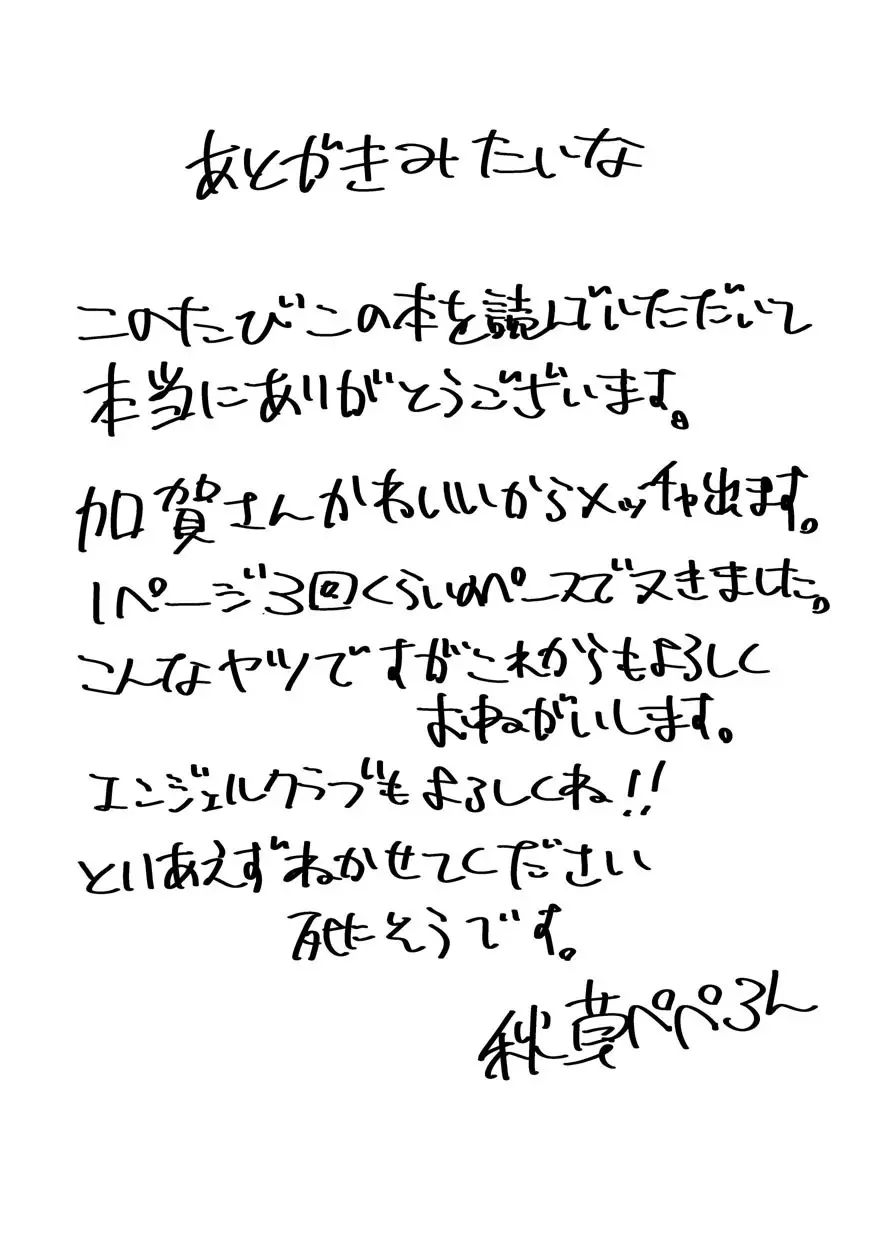 あとがきみたいな
このたびこの本を読んでいただいて
本当にありがとうございます。
加賀さんかわいいからメッチャ出ます。
1ページ3回くらいのペースでヌきました。
こんなヤツですがこれからもよろしく
おねがいします。
エンジェルクラブもよろしくね!!
とりあえずねかせてください
死にそうです。
秋草ぺぺろん